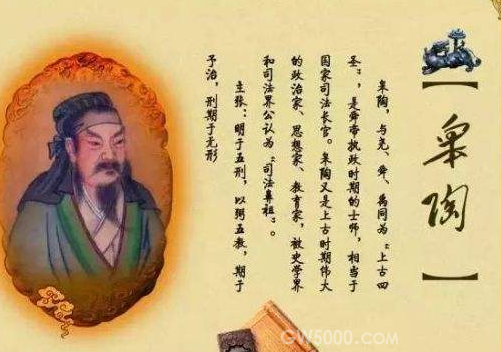 【皋陶】
皋陶,与尧、舜、禹同为“上古四
圣”,是舜帝执政时期的士师,相当于
国家司法长官。皋陶又是上古时期伟大
的政治家、思想家、教育家,被史学界
和司法界公认为“司法鼻祖”。
主张:明于五刑,以弼五教,期于
予治,刑期于无形
GW5000.COM